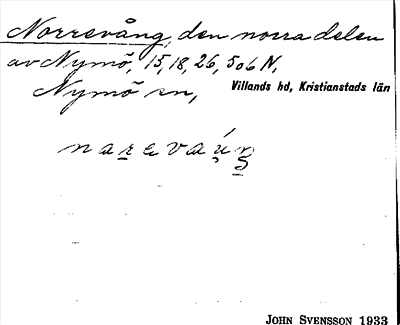 Norrevång, den norra delen
av Nymö, 15, 18, 26, 5 o 6 N,
Nymö sn, Villands hd, Kristianstads län
JOHN SVENSSON 1933